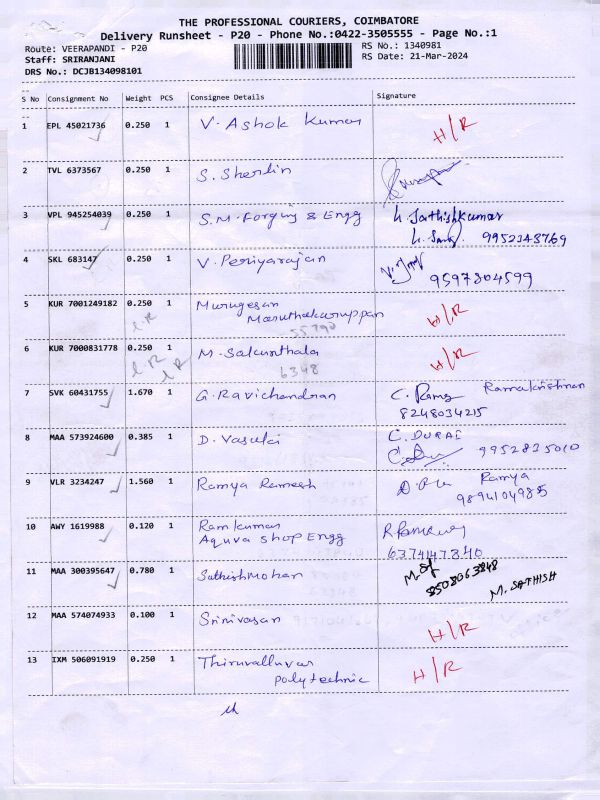 THE PROFESSIONAL COURIERS, COIMBATORE
Delivery Runsheet - P20 - Phone No.:0422-3505555 - Page No.:1
Route: VEERAPANDI - P20 RS No.: 1340981
Staff: SRIRANJANI RS Date: 21-Mar-2024
DRS No.: DCJB134098101
S No Consignment No Weight PCS Consignee Details Signature
1 EPL 45021736 0.250 1 V. Ashok Kumar H/R
2 TVL 6373567 0.250 1 S. Sherlin
3 VPL 945254039 0.250 1 S.M. Forging & Engg K. Sathishkumar
9952343769
4 SKL 683147 0.250 1 V. Periyarajan
9597304599
5 KUR 7001249182 0.250 1 Murugesan H/R
Maruthakaruppan
55790
6 KUR 7000831778 0.250 1 M. Sakunthala H/R
6348
7 SVK 60431755 1.670 1 G. Ravichandran C. Rama Ramakrishnan
8248034215
8 MAA 573924600 0.385 1 D. Vasuki C. DURAI
9952835010
9 VLR 3234247 1.560 1 Ramya Ramesh Ramya
9894104985
10 AWY 1619988 0.120 1 Ramkumar
Aquva Shop Engg 6374147340
11 MAA 300395647 0.780 1 Sathishmohan 8508063848
M. SATHISH
12 MAA 574074933 0.100 1 Srinivasan H/R
13 IXM 506091919 0.250 1 Thiruvalluvar H/R
Polytechnic